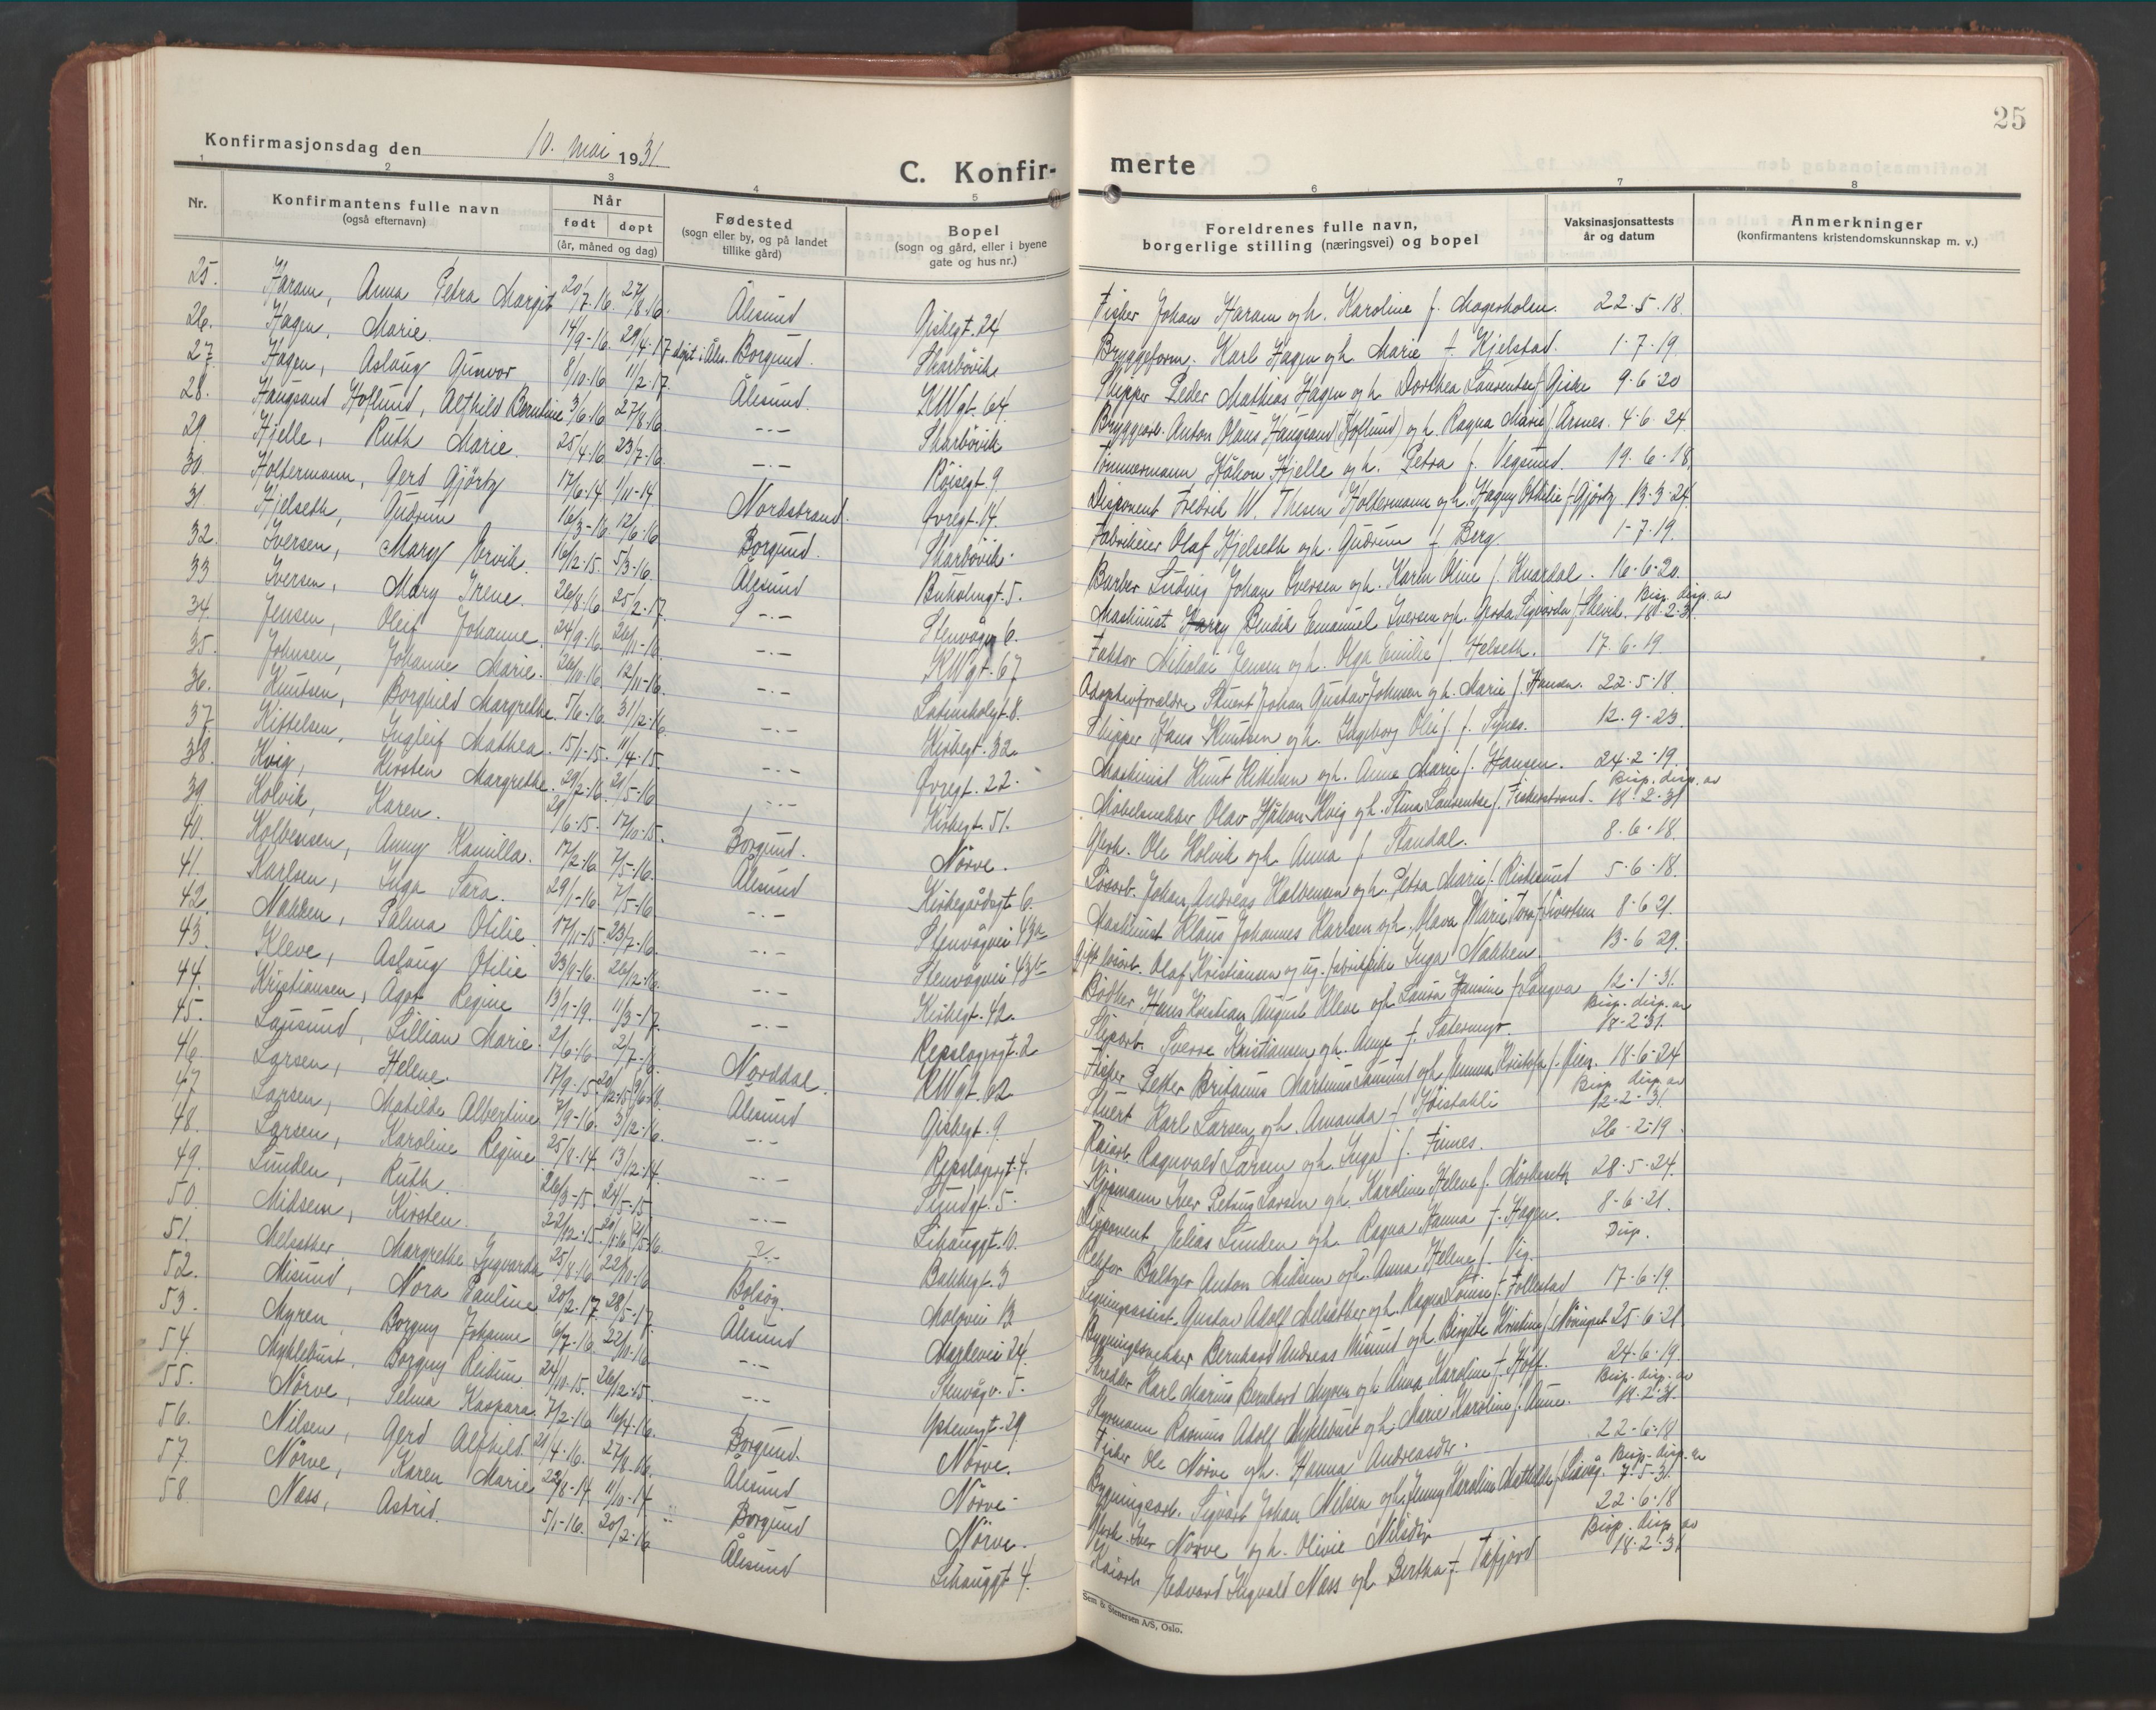 25
Konfirmasjonsdag den 10. mai 1931
C. Konfir-
merte
1 2 3 4 5 6 7 8
Nr.
Konfirmantens fulle navn
(også efternavn)
Når
født døpt
(år, måned og dag)
Fødested
(sogn eller by, og på landet
tillike gård)
Bopel
(sogn og gård, eller i byene
gate og hus nr.)
Foreldrenes fulle navn,
borgerlige stilling (næringsvei) og bopel
Vaksinasjonsattests
år og datum
Anmerkninger
(konfirmantens kristendomskunnskap m. v.)
25. Haram, Anna Petra Margit 20/7.16. 27/8.16. Ålesund Giskegt. 24 Fisker Johan Haram og h. Karoline f. Magerholm. 22.5.18.
26. Hagen, Marie. 14/9-16. 29/4.17 døpt i Åles. Borgund. Skarbövik Bryggeform. Karl Hagen og h. Marie f. Kjelstad. 1-7.19.
27. Hagen, Aslaug Gunvor 8/10-16 11/2-17. Ålesund. KWgt. 64. Skipper Peder Mathias Hagen og h. Dorthea Laurentse f. Giske 9-6-20
28. Haugsand Hoflund, Alfhild Berntine 3/6-16 27/8-16 -"- Skarbövik Bryggearb. Anton Olaus Haugsand (Hoflund) og h. Ragna Marie f. Årsnes. 4-6.24.
29. Hjelle, Ruth Marie. 25/4.16 23/7-16. -"- Röisegt. 9 Tömmermann Håkon Hjelle og h. Petra f. Vegsund. 19.6-18
30. Holtermann, Gerd Gjörtz 17/6-14. 1/11-14 Nordstrand. Övregt. 14. Disponent Fredrik W. Thesen Holtermann og h. Hagny Othilie f. Gjörtz. 13-3-24.
31. Hjelseth, Gudrun 16/3-16 12/6-16 Borgund. Skarbövik. Fabrikeier Olaf Hjelseth og h. Gudrun f. Berg. 1-7.19.
32. Iversen, Mary Jervik. 16/12-15. 5/3-16. Ålesund Buholmgt. 5. Barber Ludvig Johan Iversen og h. Karen Oline f. Kvardal. 16-6-20.
33 Iversen, Mary Irene. 26/8.16. 25/2-17. -"- Stenvågn 6. Maskinist Harry Bendik Emanuel Iversen og h. Gerda Sigvarda f. Slevik. Bisp. disp. av 18.2-31.
34. Jensen, Oleif Johanne. 24/9-16. 26/11-16. -"- KWgt. 67 Faktor Nikolai Jensen og h. Olga Emilie f. Helseth. 17.6-19
35. Johnsen, Johanne Marie. 26/10.16 12/11-16. -"- Latinskolegt. 8. Adoptivforeldre Stuert Johan Gustav Johnsen og h. Marie f. Hansen. 22.5.18.
36. Knutsen, Borghild Margrethe. 5/6-16. 31/12-16. -"- Kirkegt. 32. Skipper Hans Knutsen og h. Ingeborg Olei f. Synes. 12.9-23.
37. Kittelsen, Ingleif Mathea. 15/1-15. 11/4-15. -"- Övregt. 22. Maskinist Knut Kittelsen og h. Anna Marie f. Hansen. 24.2.19.
38. Kvig, Kirsten Margrethe. 29/2.16. 21/5-16 -"- Kirkegt. 51. Möbelsnekker Olav Håkon Kvig og h. Stina Laurentse f. Fiskerstrand. Bisp. disp. av 18-2-31
39. Kolvik, Karen. 29/6-15. 17/10-15. Borgund. Nörve. Gårdb. Ole Kolvik og h. Anna f. Standal. 8.6-18.
40. Kolbensen, Anny Kamilla. 17/2-16. 7/5-16. Ålesund Kirkegårdsgt. 6. Lösarb. Johan Andreas Kolbensen og h. Petra Marie f. Riksund 5.6-18.
41. Karlsen, Inga Tora. 29/1-16 7/5-16 -"- Stenvågvei 43a Maskinist Klaus Johannes Karlsen og h. Olava Marie Tora f. Sivertsen 8-6 21.
42. Nakken, Palma Otilie 17/11-15. 23/7-16. -"- Stenvågvei 43b Gift lösarb. Olaf Kristiansen og ug. fabrikpike Inga Nakken. 13-6 29.
43. Kleve, Aslaug Otilie 23/9-16. 26/12-16. -"- Kirkegt. 42. Bödker Hans Kristian August Kleve og h. Laura Hansine f. Langva 12-1-31.
44. Kristiansen, Agot Regine 13/1-19. 11/3-17. -"- Repslagergt. 2 Sliparb. Sverre Kristiansen og h. Anne f. Sætermyr. Bisp. disp. av 18-2-31.
45. Lausund, Lillian Marie. 2/6-16 2/7-16. Norddal. KWgt. 62 Fisker Petter Britanus Martinus Lausund og h. Anna Kristofa f. Oien. 18-6-24
46. Larsen, Helene. 17/9-15. 20/12-15 9/6-18. Ålesund Giskegt. 9. Stuert Karl Larsen og h. Amanda f. Höistakli Bisp. disp. av 12-2-31.
47 Larsen, Matilde Albertine 7/9-16. 3/12-16. -"- Repslagergt. 4. Kaiarb. Ragnvald Larsen og h. Inga f. Finnes. 26-2-19.
48. Larsen, Karoline Regine 25/8-14. 13/12-14. -"- Sundgt. 5. Kjöpmann Iver Petrus Larsen og h. Karoline Helene f. Mörkeseth 28.5-24.
49. Lunden, Ruth. 26/3-15. 24/5-15. -"- Lihauggt. 10. Disponent Elias Lunden og h. Ragna Hanna f. Hagen. 8-6-21.
50. Midsem, Kirsten. 22/12-15. 20/1-16 (21/5-16. -"- Bakkegt. 3 Rektor Baltzer Anton Midsem og h. Anna Helene f. Vig. Disp.
51. Melsæther, Margrethe Ingvarda 25/8-16 22/10-16 Bolsöy. Molovei 13 Ligningsassist. Gustav Adolf Melsæther og h. Ragna Louise f. Follestad 17-6-19.
52. Misund, Nora Pauline 20/2-17. 28/5-17. Ålesund Marlevei 24. Bygningssnekker Bernhard Andreas Misund og h. Birgitte Kristine f. Nöringset 25-6-21
53. Myren, Borgny Johanne 6/7-16 22/10-16 -"- Stenvågv. 5. Skredder Karl Marius Bernhard Myren og h. Anna Karoline f. Hoff. 24-6-19.
54. Myklebust, Borgny Reidun 24/10-15. 26/12-15 -"- Ystenesgt. 29 Styrmann Rasmus Adolf Myklebust og h. Marie Karoline f. Aune. Bisp. disp. av 18-2-31.
55. Nörve, Selma Kaspara 7/2-16 16/4-16. Borgund. Nörve. Fisker Ole Nörve og h. Hanna Andreasdtr. 22-6-18
56. Nilsen, Gerd Alfhild 21/4-16. 27/8-16. Ålesund Nörve. Bygningsarb. Sigvart Johan Nilsen og h. Jenny Karoline Mathilde f. Bisp. disp. av 7-5-31.
57. Nörve, Karen Marie 22/8-14 11/10-14 Borgund Nörve. Gårdb. Iver Nörve og h. Olivie Nilsdtr. 22-6-18
58 Næss, Astrid. 5/1-16. 20/2-16 Ålesund Lihauggt. 4. Kaiarb. Edvard Ingvald Næss og h. Bertha f. Tafjord Bisp. disp av 18.2-31
Sem & Stenersen A/S, Oslo.